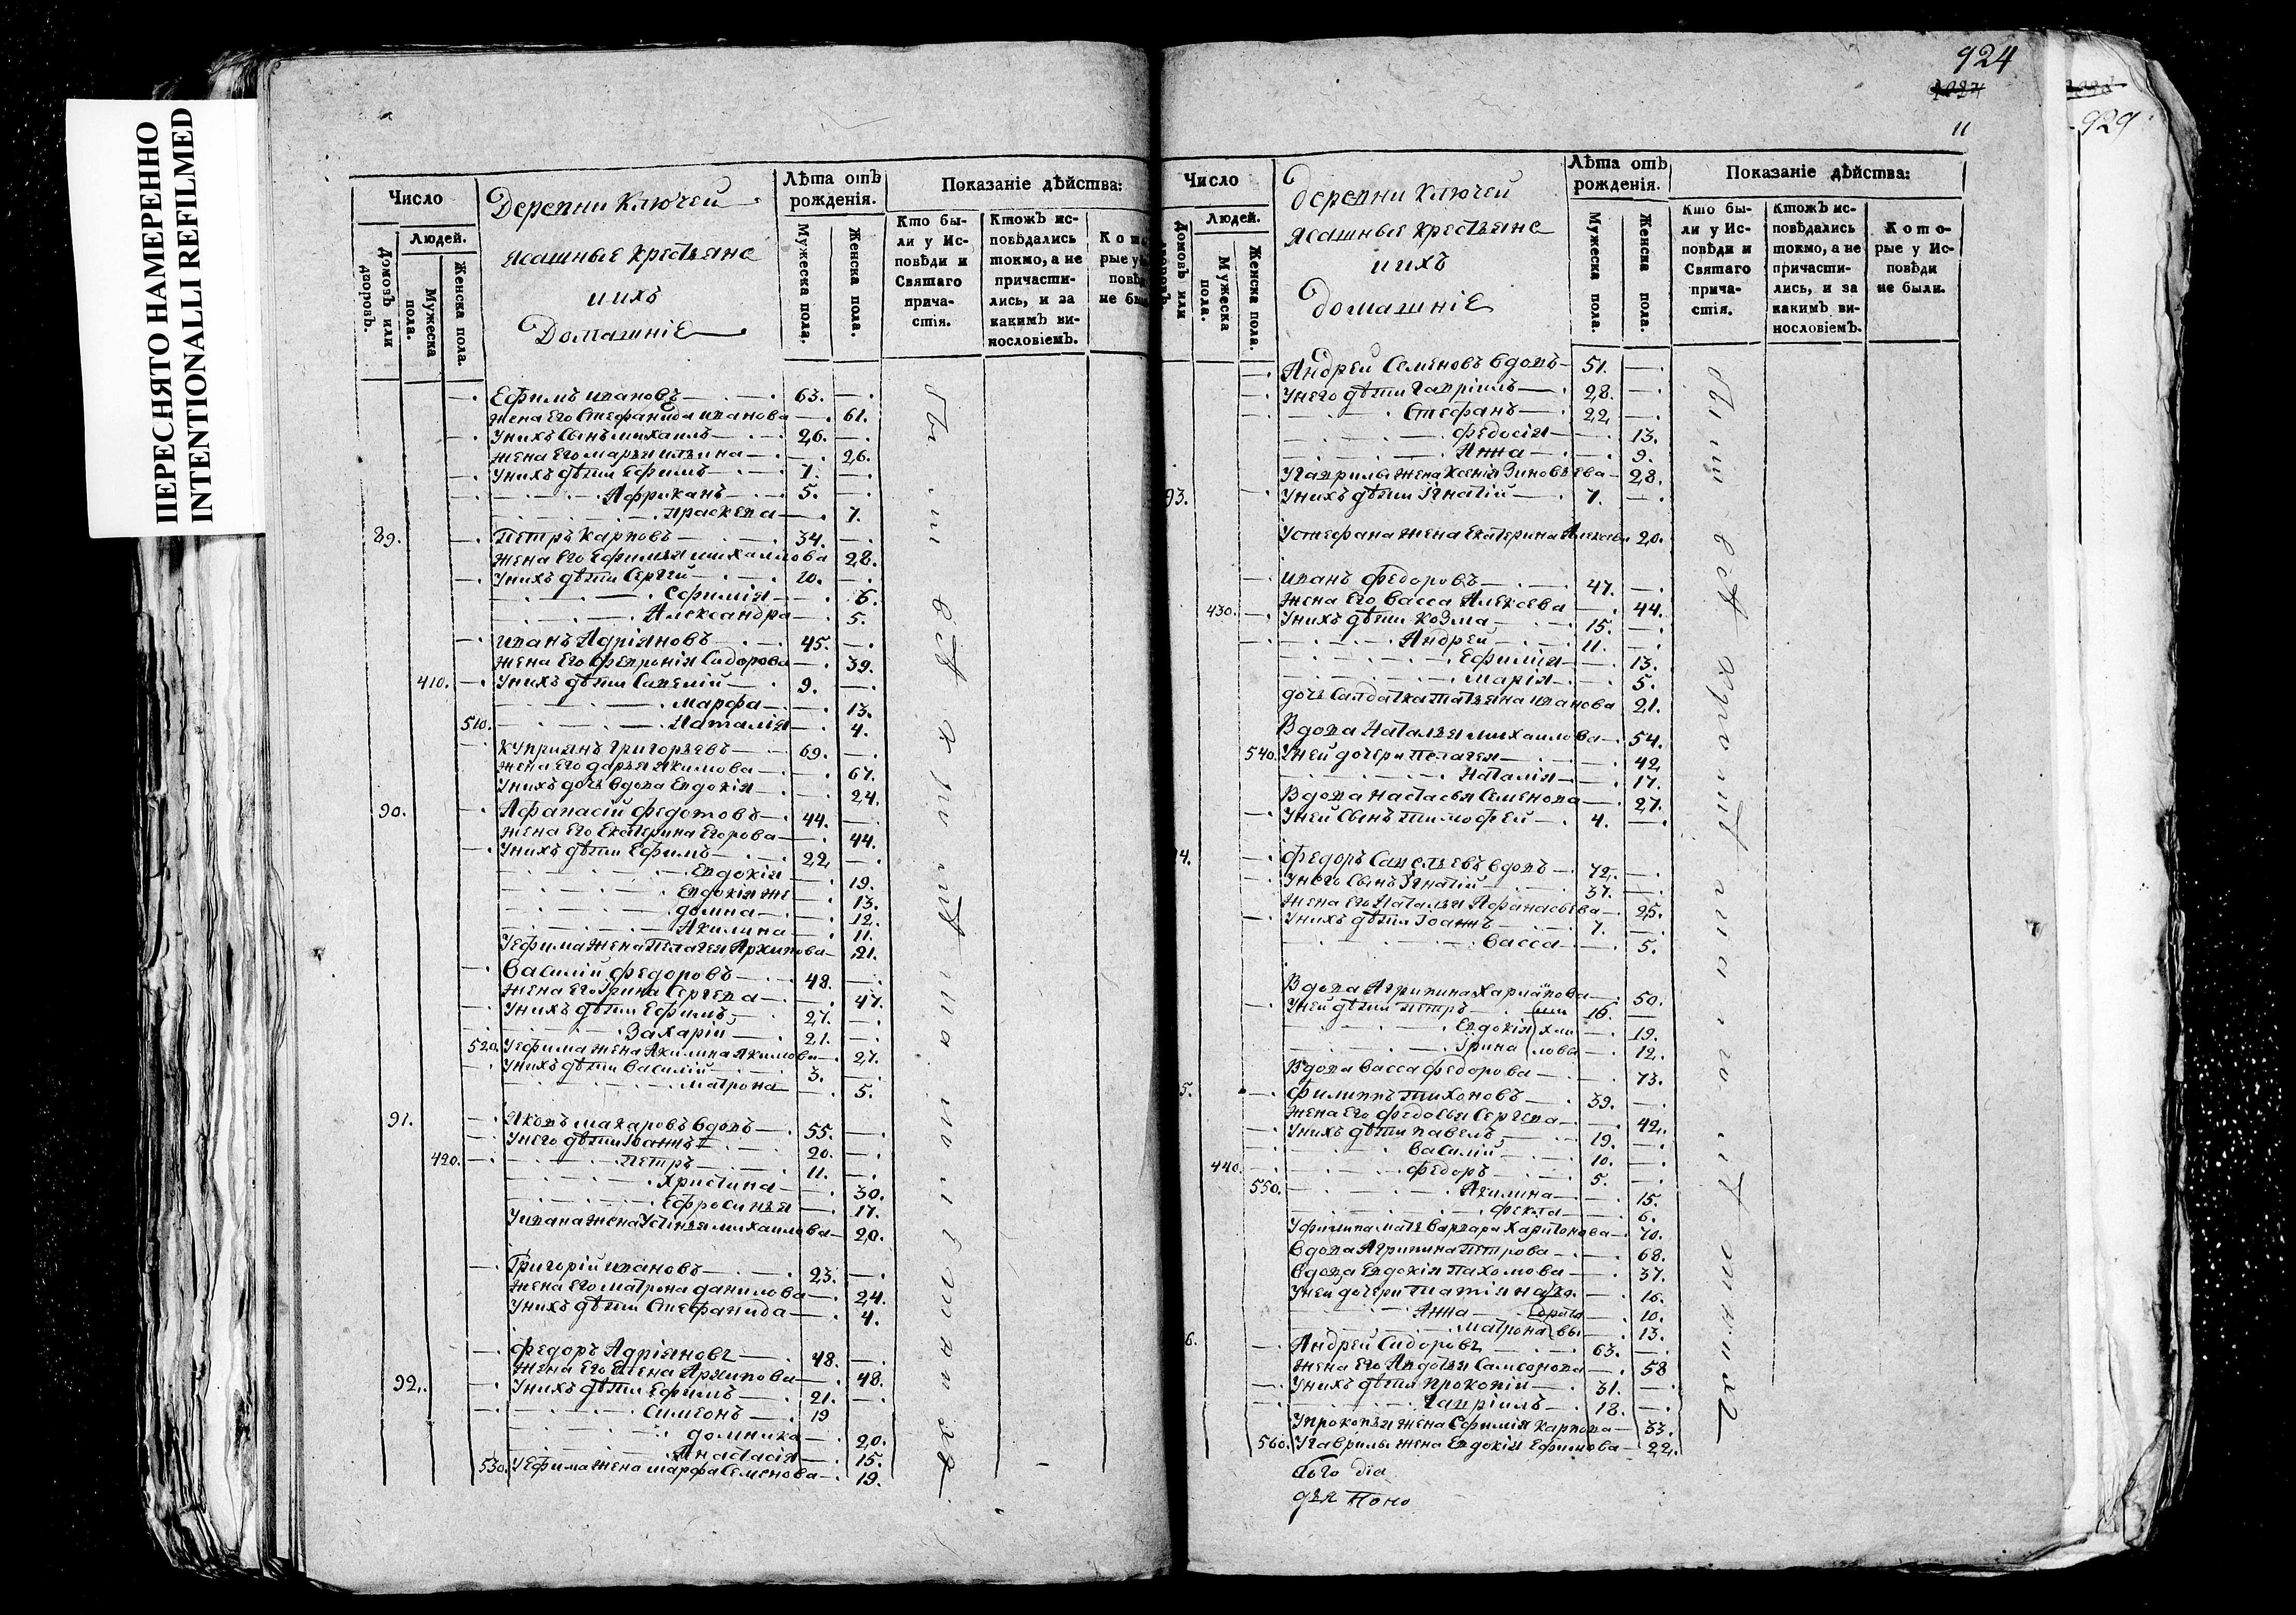 ПЕРЕСНЯТО НАМЕРЕННО
INTENTIONALLI REFILMED
Число
Деревни Ключей
ясашные крестьяне
и ихъ
Домашніе
Лѣта отъ
рожденія.
Показаніе дѣйства:
Людей.
Домовъ или
дворовъ.
Мужеска
пола.
Женска пола.
Мужеска пола.
Женска пола.
Кто бы-
ли у Ис-
повѣди и
Святаго
прича-
стія.
Ктожъ ис-
повѣдались
токмо, а не
причасти-
лись, и за
какимъ ви-
нословіемъ.
Ефимъ Ивановъ 63.
жена Его Стефанида Иванова 61.
У нихъ Сынъ Михаилъ 26.
жена Его Марья Ильина 26.
У нихъ дѣти Ефимъ 7.
Африканъ 5.
Праскева 7.
89. Петръ Карповъ 34.
жена Его Ефимья Михаилова 28.
У нихъ дѣти Сергей 10.
Ефимія 6.
Александра 5.
Иванъ Адріяновъ 45.
жена Его Февронія Сидорова 39.
410. У нихъ дѣти Савелій 9.
Марфа 13.
510. Наталія 4.
Куприянъ Григорьевъ 69.
жена Его Дарья Якимова 67.
У нихъ дочь вдова Евдокія 24.
90. Афанасій Федотовъ 44.
жена Его Екатерина Егорова 44.
У нихъ дѣти Ефимъ 22.
Евдокія 19.
Евдокія же 13.
Домна 12.
Акилина 11.
У Ефима жена Пелагея Архипова 21.
Василій Федоровъ 48.
жена Его Ірина Сергева 47.
У нихъ дѣти Ефимъ 27.
Захарій 21.
520. У Ефима жена Акилина Якимова 27.
У нихъ дѣти Василій 3.
Матрона 5.
91. Яковъ Макаровъ вдовъ 55.
У него дѣти Іоаннъ 20.
420. Петръ 11.
Христина 30.
Ефросинья 17.
У Ивана жена Устинья Михаилова 20.
Григорій Ивановъ 23.
жена Его Матрона Данилова 24.
У нихъ дѣти Стефанида 4.
Федоръ Адріяновъ 48.
жена Его Елена Архипова 48.
92. У нихъ дѣти Ефимъ 21.
Симеонъ 19
Домника 20.
Анастасія 15.
530. У Ефима жена Марфа Семенова 19.
924
11
929
Число
деревни Ключей
ясашные крестьяне
и ихъ
домашніе
Лѣта отъ
рожденія.
Показаніе дѣйства:
Людей.
Домовъ или
Мужеска
пола.
Женска пола.
Мужеска пола.
Женска пола.
Кто бы-
ли у Ис-
повѣди и
Святаго
прича-
стія.
Ктожъ ис-
повѣдались
токмо, а не
причасти-
лись, и за
какимъ ви-
нословіемъ.
Кото-
рые у Ис-
повѣди
не были.
Андрей Семеновъ вдовъ 51.
У него дѣти Гавріилъ 28.
Стефанъ 22
Федосія 13.
Анна 9.
У Гаврилы жена Ксенія Зиновьева 28.
93. У нихъ дѣти Игнатій 7.
У Стефана жена Екатерина Алексева 20.
Иванъ Федоровъ 47.
жена Его Васса Алексева 44.
430. У нихъ дѣти Козма 15.
Андрей 11.
Ефимія 13.
Марія 5.
дочь Салдатка Татьяна Иванова 21.
Вдова Наталья Михаилова 54.
540. У ней дочери Пелагея 42
Наталія 17.
Вдова Настасья Семенова 27.
У ней сынъ Тимофей 4.
4. Федоръ Савельевъ вдовъ 72.
У него сынъ Игнатій 37.
жена Его Наталья Афанасьева 25.
У нихъ дѣти Іоаннъ 7.
Васса 5.
Вдова Агрипина Харлапова 50.
У ней дѣти Петръ 16.
Евдокія 19.
Ірина 12.
Вдова Васса Федорова 73.
5. Филиппъ Тихоновъ 39.
жена Его Федосья Сергева 42.
У нихъ дѣти Павелъ 19.
Василій 10.
440. Федоръ 5.
550. Акилина 15.
Фекла 6.
У Филипа мать Варвара Харитонова 70.
вдова Агрипина Петрова 68.
вдова Евдокія Пахомова 37.
У ней дочери Татіяна 16.
Анна 10.
Матрона 13.
6. Андрей Сидоровъ 63.
жена Его Авдотья Самсонова 58
У нихъ дѣти Прокопій 31.
Гавріилъ 18.
У Прокопья жена Ефимія Карпова 33.
560. У Гаврилы жена Евдокія Ефимова 22.
діа
дья Поно